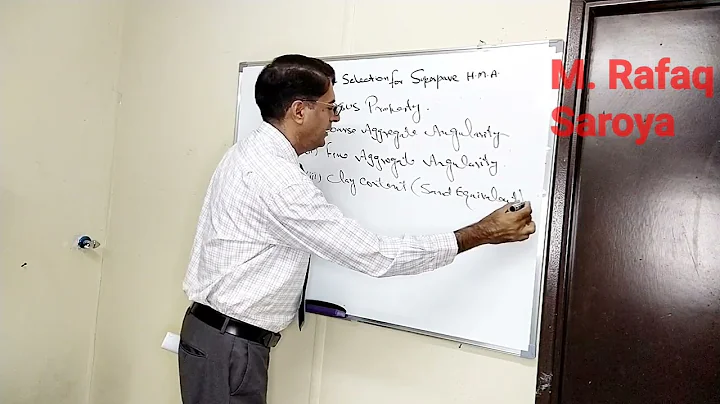 Selection for Superpave H.M.A
Property.
Aggregate Angularity
Fine Aggregate Angularity.
iii) Clay Content (Sand Equivalent)
M. Rafaq
Saroya